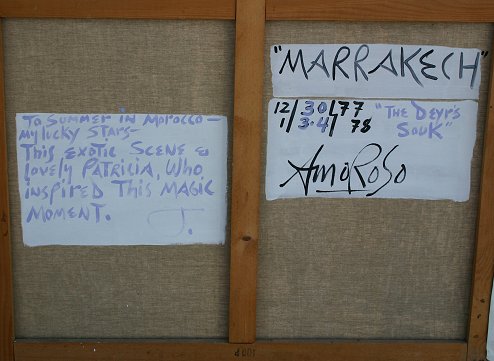 To Summer in Morocco —
my lucky stars —
This exotic Scene &
lovely Patricia, who
inspired This Magic
Moment.
J.
"MARRAKECH"
12/30/77 "The Deyr's
1/3·4/78 Souk"
Amoroso